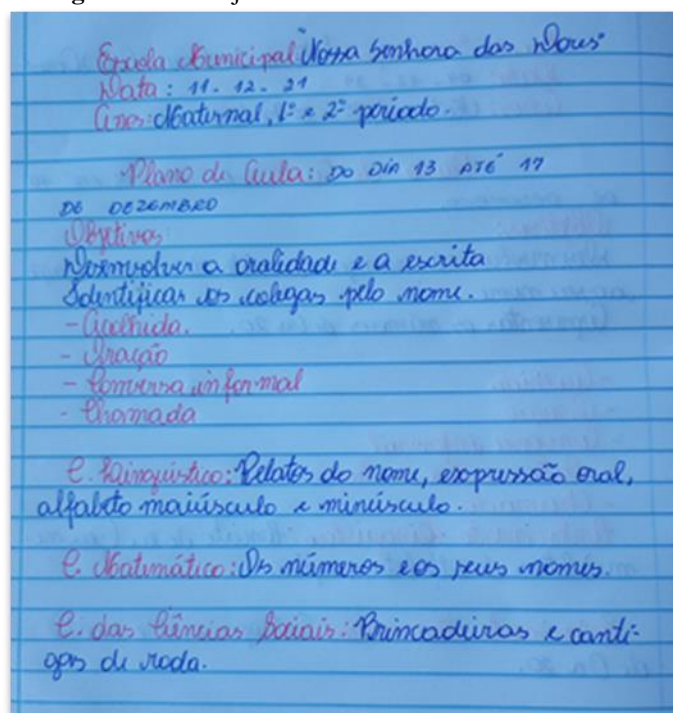 Escola Municipal "Nossa Senhora das Dores"
Data: 11. 12. 21
Ano: Maternal, 1º e 2º período.
Plano de Aula: DO DIA 13 ATÉ 17
DE DEZEMBRO
Objetivos
Desenvolver a oralidade e a escrita
Identificar os colegas pelo nome.
- Acolhida.
- Oração
- Conversa informal
- Chamada
C. Linguístico: Relatos do nome, expressão oral,
alfabeto maiúsculo e minúsculo.
C. Matemático: Os números e os seus nomes.
C. das Ciências Sociais: Brincadeiras e canti-
gas de roda.